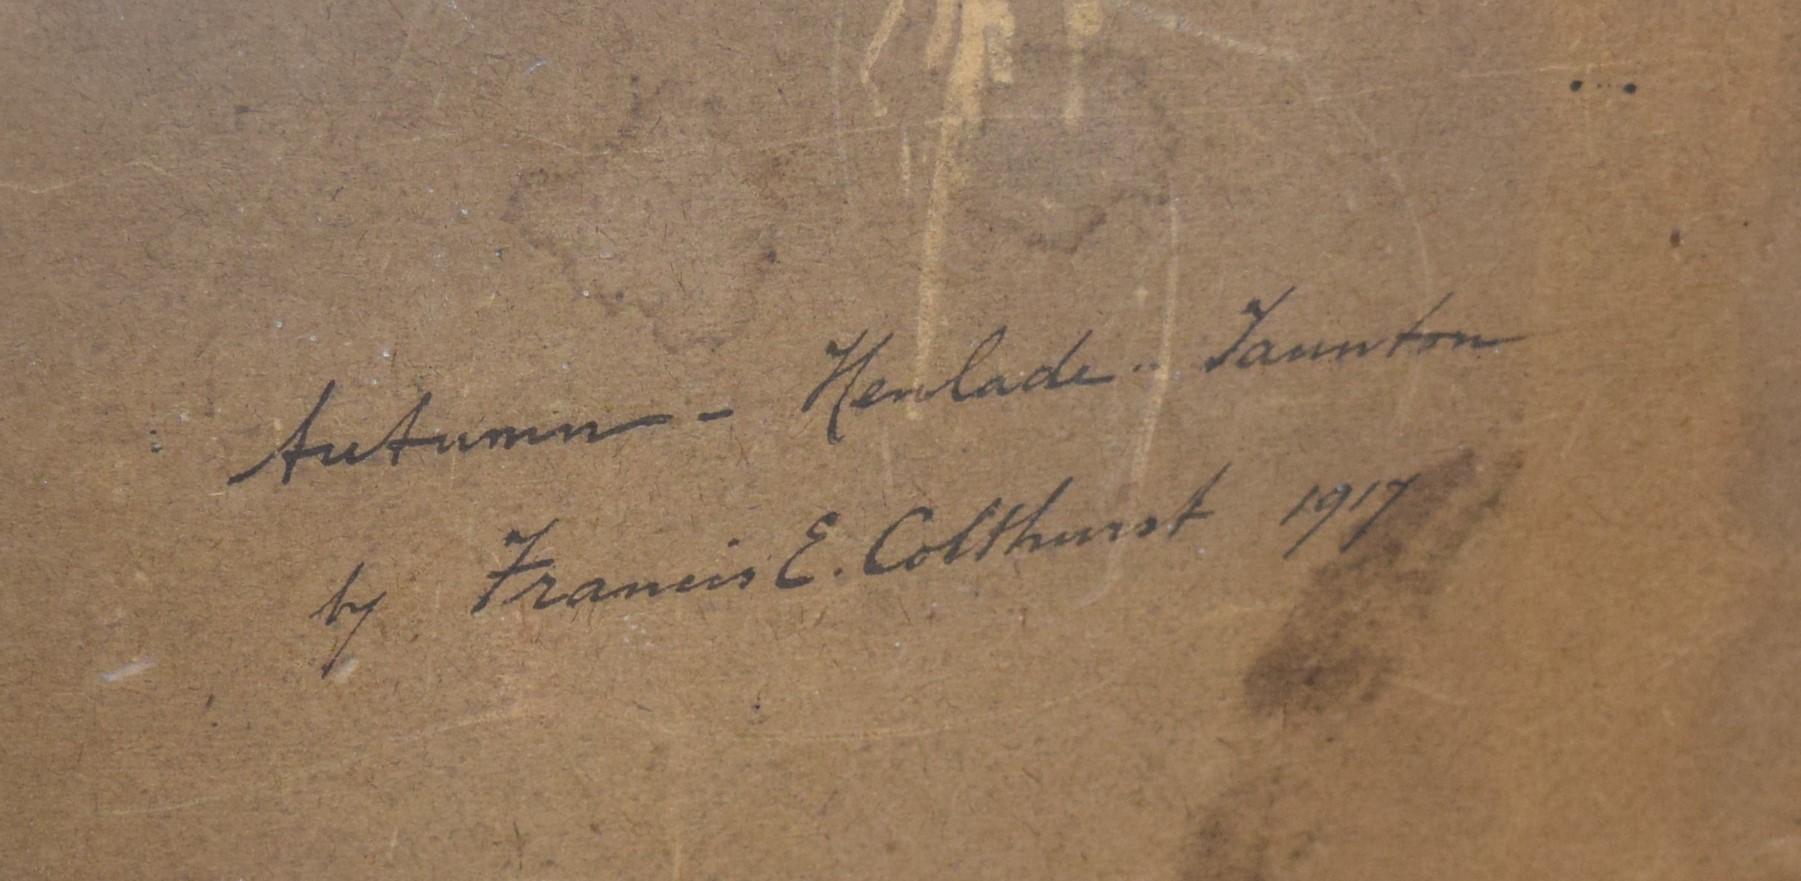 Autumn - Henlade - Taunton
by Francis E. Colthurst 1917